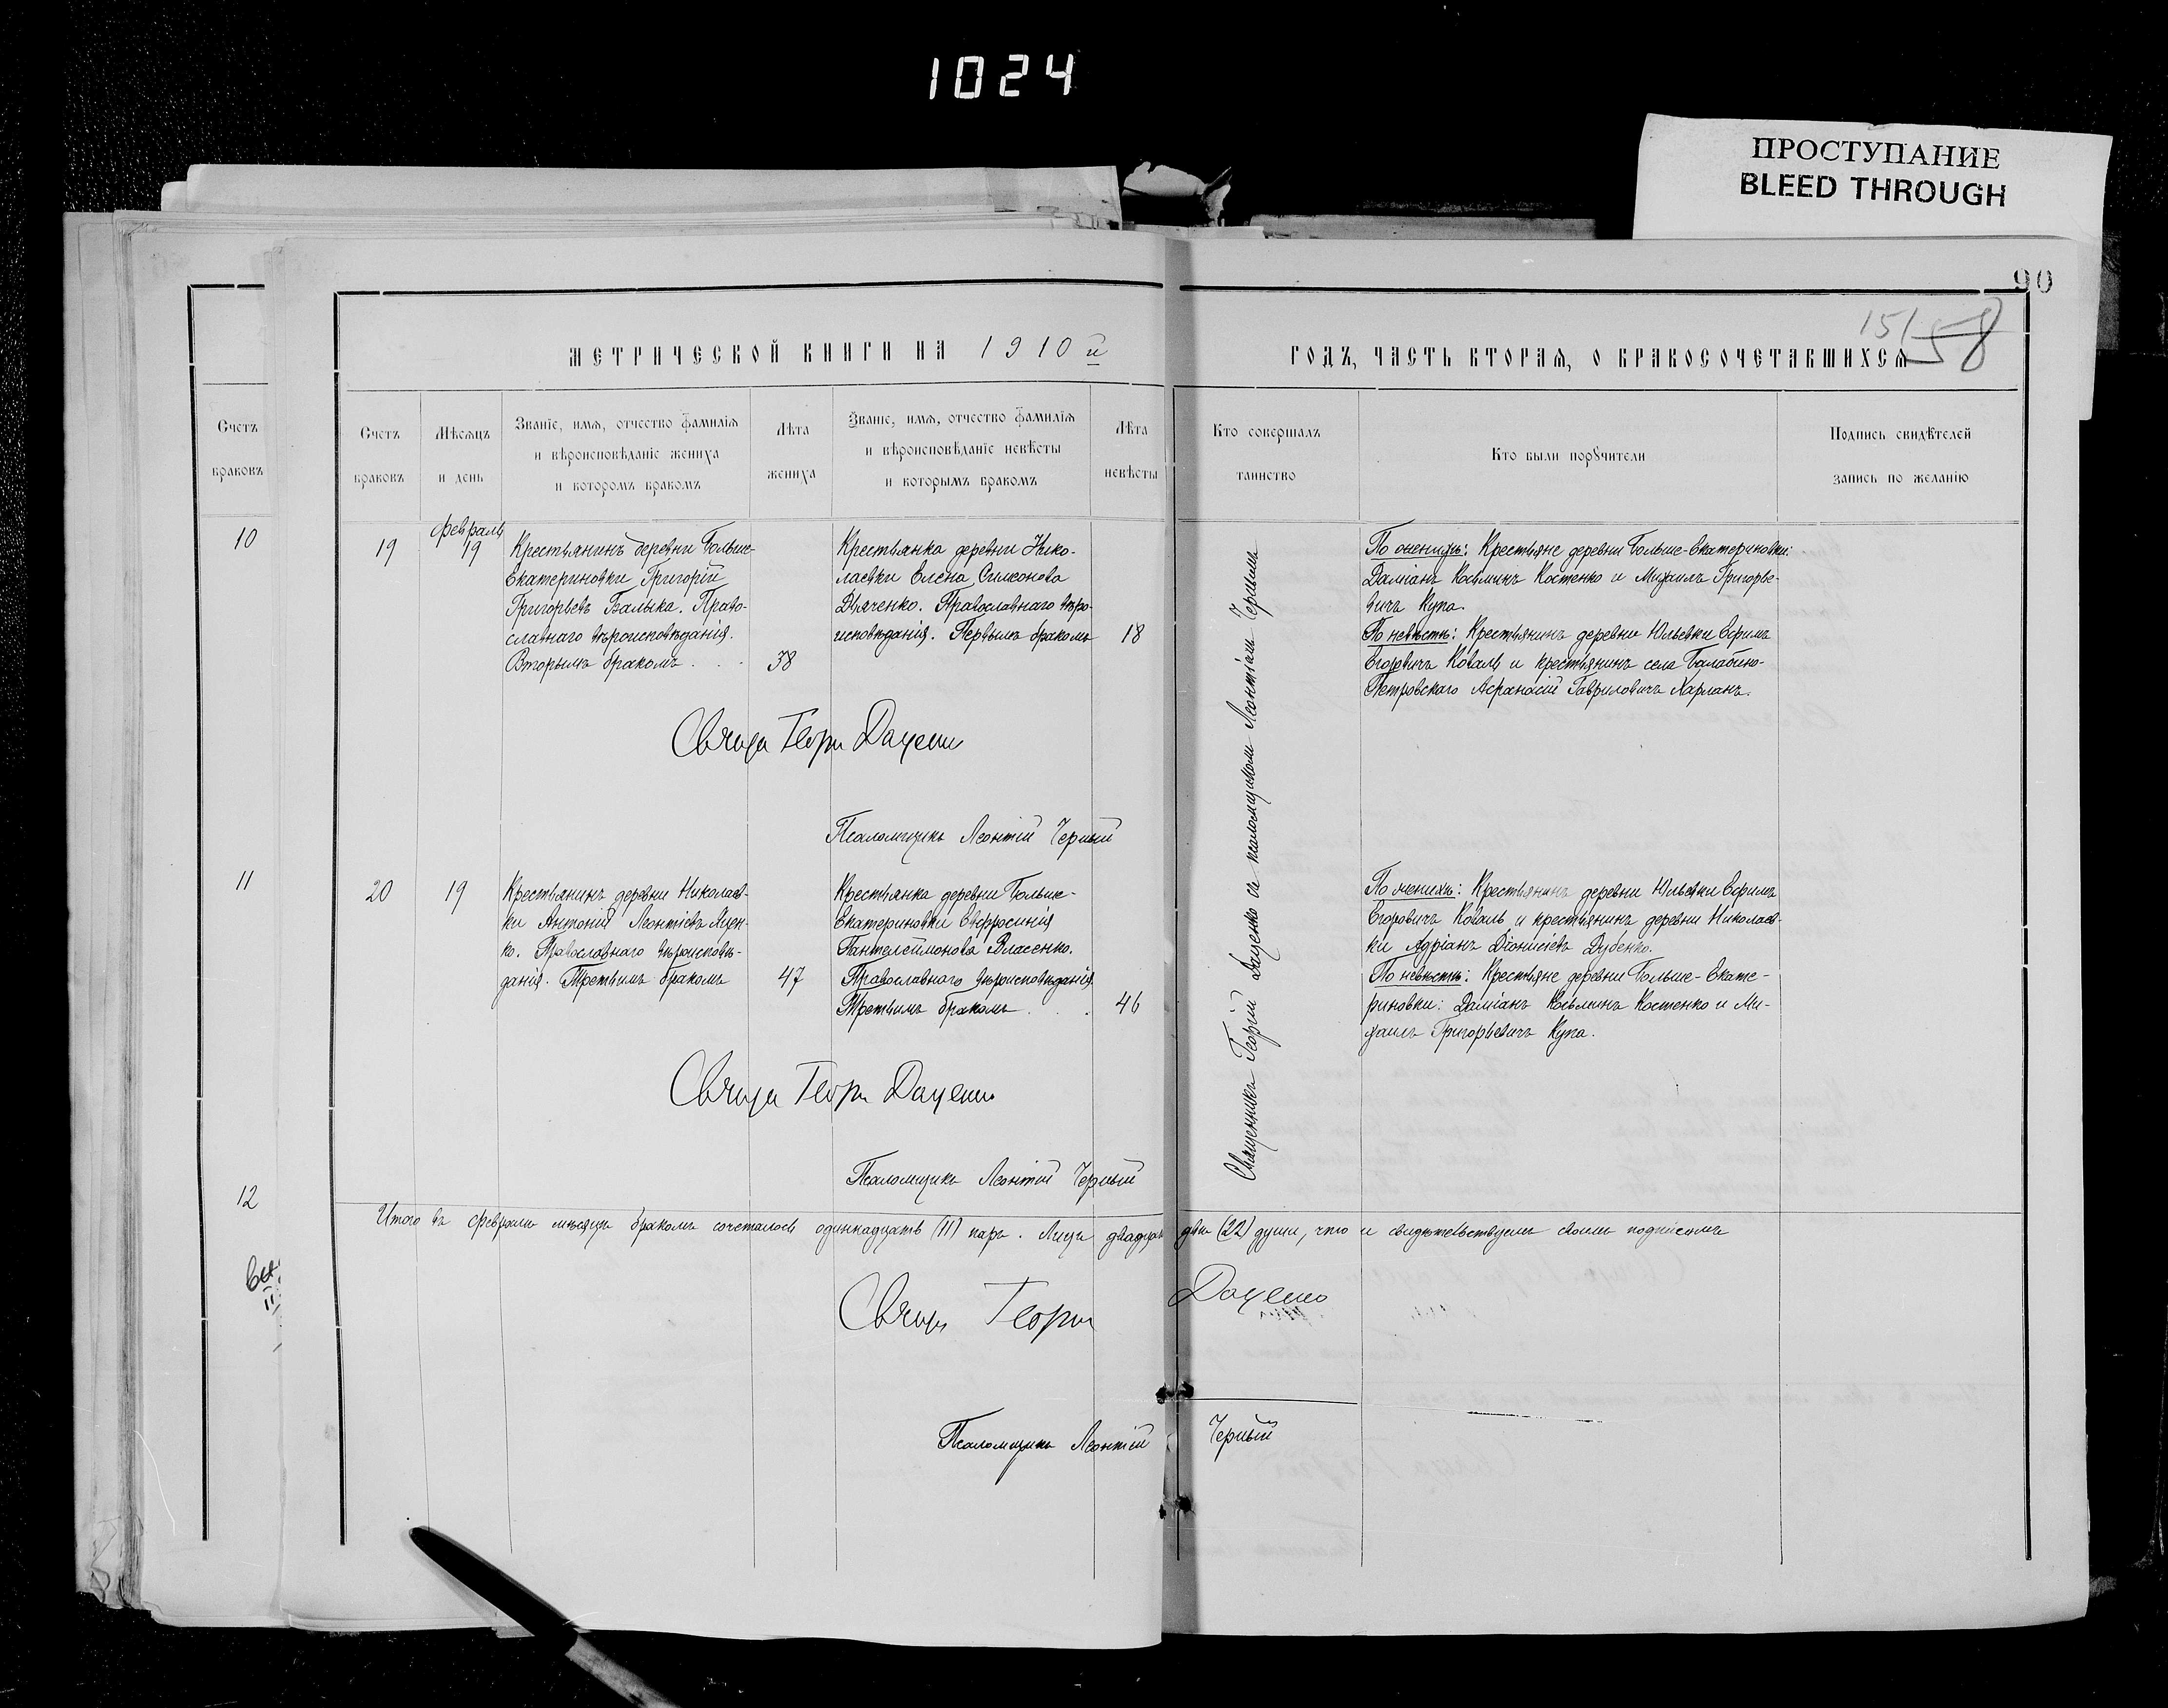 1024
ПРОСТУПАНИЕ
BLEED THROUGH
90
151
58
МЕТРИЧЕСКОЙ КНИГИ НА 1910й
ГОДЪ, ЧАСТЬ ВТОРАЯ, О БРАКОСОЧЕТАВШИХСЯ
Счетъ
браковъ
10
11
12
Счетъ
браковъ
Мѣсяцъ
и день
Званіе, имя, отчество фамилія
и вѣроисповѣданіе жениха
и которомъ бракомъ
Лѣта
жениха
Званіе, имя, отчество фамилія
и вѣроисповѣданіе невѣсты
и которымъ бракомъ
Лѣта
невѣсты
Кто совершалъ
таинство
Кто были порꙋчители
Подпись свидѣтелей
запись по желанію
19
Февраль
19
Крестьянинъ деревни Больше-
Екатериновки Григорій
Григорьевъ Балыка. Право-
славнаго вѣроисповѣданія.
Вторымъ бракомъ . . .
38
Крестьянка деревни Нико-
лаевки Елена Симеонова
Дьяченко. Православнаго вѣро-
исповѣданія. Первымъ бракомъ
18
Священникъ Георгій Даценко съ псаломщикомъ Леонтіемъ Чернымъ
По женихѣ: Крестьяне деревни Больше-Екатериновки:
Даміанъ Косьминъ Костенко и Михаилъ Григорье-
вичъ Купа.
По невѣстѣ: Крестьянинъ деревни Юльевки Ефимъ
Егоровичъ Коваль и крестьянинъ села Балабино-
Петровскаго Афанасій Гавриловичъ Харланъ.
Георгій Даценко
Псаломщикъ Леонтій Черный
20
19
Крестьянинъ деревни Николаев-
ки Антоній Леонтіевъ
ко. Православнаго вѣроисповѣ-
данія. Третьимъ бракомъ
47
Крестьянка деревни Больше-
Екатериновки Евфросинія
Пантелеймонова Власенко.
Православнаго вѣроисповѣданія.
Третьимъ бракомъ . . .
46
По женихѣ: Крестьянинъ деревни Юльевки Ефимъ
Егоровичъ Коваль и крестьянинъ деревни Николаев-
ки Адріанъ Діонисіевъ Дубенко.
По невѣстѣ: Крестьяне деревни Больше-Екате-
риновки: Даміанъ Косьминъ Костенко и Ми-
хаилъ Григорьевичъ Купа.
Георгій Даценко
Псаломщикъ Леонтій Черный
Итого въ февралѣ мѣсяцѣ бракомъ сочеталось одиннадцать (11) паръ. Лицъ двадцать двѣ (22) души, что и свидѣтельствуемъ своимъ подписомъ
Георгій Даценко
Псаломщикъ Леонтій Черный